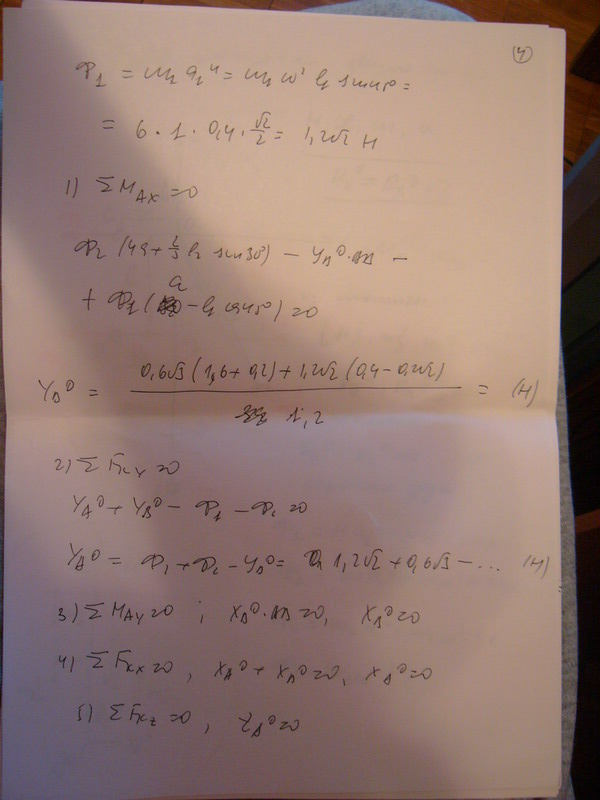 4
Φ₁ = m₁ a₁ⁿ = m₁ ω² l₁ sin45° =
= 6 · 1 · 0,4 · √2/2 = 1,2√2 Н
1) Σ M_Ax = 0
Φ₂ (4a + 2/3 l₂ sin30°) − Y_B^D · AB −
+ Φ₁ (a − l₁ cos45°) = 0
Y_B^D = (0,6√3 (1,6 + 0,2) + 1,2√2 (0,4 − 0,2√2)) / 1,2 = (Н)
2) Σ F_ky = 0
Y_A^D + Y_B^D − Φ₁ − Φ₂ = 0
Y_A^D = Φ₁ + Φ₂ − Y_B^D = 1,2√2 + 0,6√3 − ... (Н)
3) Σ M_Ay = 0 ; X_B^D · AB = 0, X_B^D = 0
4) Σ F_kx = 0, X_A^D + X_B^D = 0, X_A^D = 0
5) Σ F_kz = 0, Z_A^D = 0